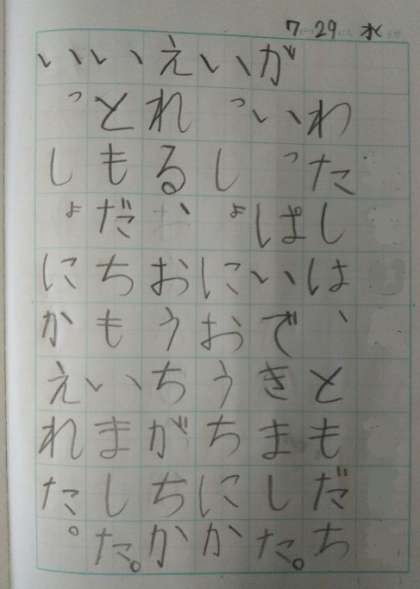 7 29 水
わたしは、ともだち
がいっぱいできました。
いっしょにおうちにか
えれる、おうちがちか
いともだちもいました。
いっしょにかえれた。